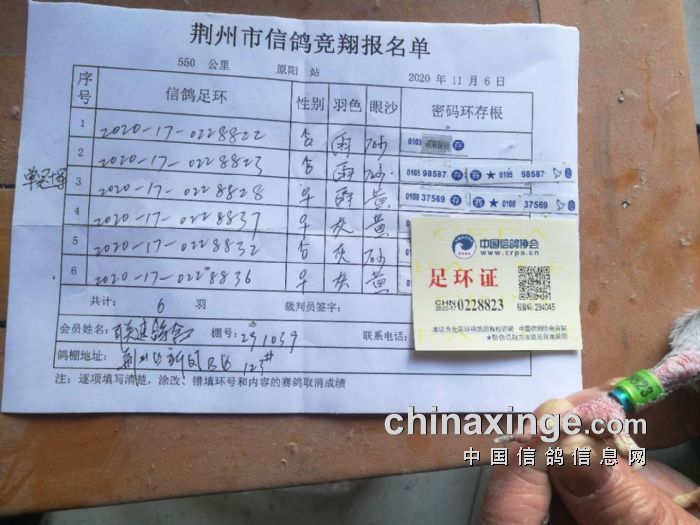 荆州市信鸽竞翔报名单
550 公里 原阳 站 2020 年 11 月 6 日
序号 信鸽足环 性别 羽色 眼沙 密码环存根
1 2020-17-0228822 雨 砂 0103 存
2 2020-17-0228823 雨 砂 0105 98587 存 赛 ★ 0105 98587
3 2020-17-0228828 黄 0108 37569 存 赛 ★ 0108 37569
4 2020-17-0228837 灰 黄
5 2020-17-0228832 砂
6 2020-17-0228836 黄
共计： 6 羽 裁判员签字：
会员姓名： 棚号： 291039 联系电话：
鸽棚地址： 荆州
注：逐项填写清楚，涂改、错填环号和内容的赛鸽取消成绩
中国信鸽协会
www.crpa.cn
足环证
CHN 2020-17 0228823
294045
chinaxinge.com
中国信鸽信息网